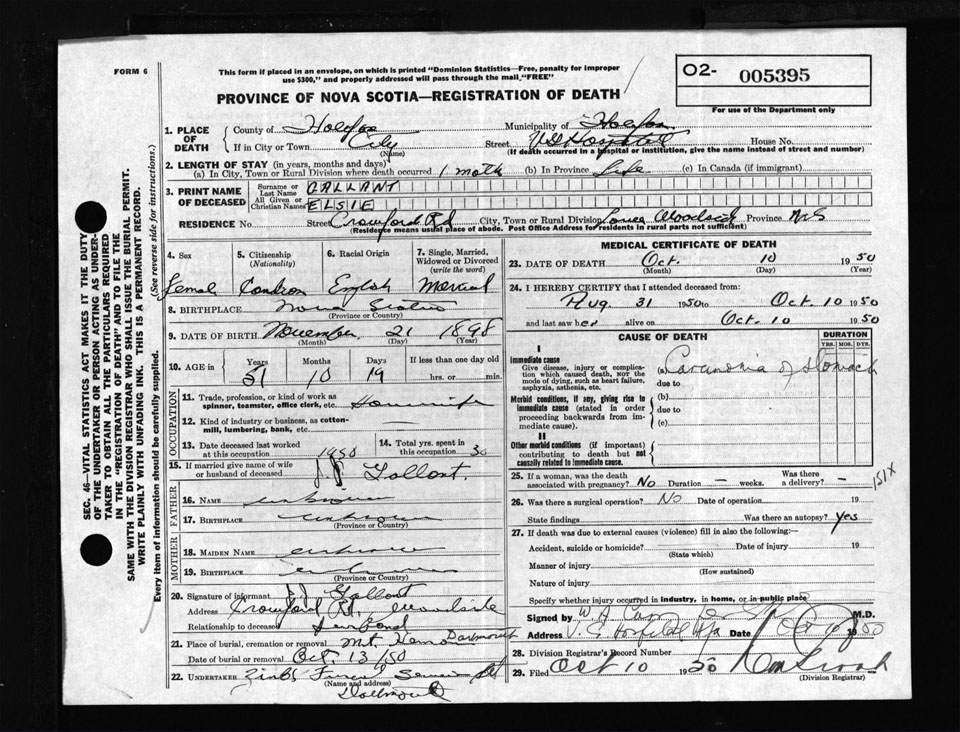 FORM 6
This form if placed in an envelope, on which is printed "Dominion Statistics—Free, penalty for improper use $300," and properly addressed will pass through the mail "FREE"
O2- 005395
For use of the Department only
PROVINCE OF NOVA SCOTIA—REGISTRATION OF DEATH
1. PLACE OF DEATH
County of Halifax Municipality of Halifax
If in City or Town City (Name) Street V G Hospital House No.
(If death occurred in a hospital or institution, give the name instead of street and number)
2. LENGTH OF STAY (in years, months and days)
(a) In City, Town or Rural Division where death occurred 1 month (b) In Province Life (c) In Canada (if immigrant)
3. PRINT NAME OF DECEASED
Surname or Last Name GALLANT
All Given or Christian Names ELSIE
RESIDENCE No. Street Crawford Rd City, Town or Rural Division Woodside Province N.S
(Residence means usual place of abode. Post Office Address for residents in rural parts not sufficient)
4. Sex Female
5. Citizenship (Nationality) Canadian
6. Racial Origin English
7. Single, Married, Widowed or Divorced (write the word) Married
8. BIRTHPLACE Nova Scotia (Province or Country)
9. DATE OF BIRTH November (Month) 21 (Day) 1898 (Year)
10. AGE in Years 51 Months 10 Days 19 If less than one day old hrs. or min.
OCCUPATION
11. Trade, profession, or kind of work as spinner, teamster, office clerk, etc. Housewife
12. Kind of industry or business, as cotton-mill, lumbering, bank, etc. —
13. Date deceased last worked at this occupation 1950
14. Total yrs. spent in this occupation 30
15. If married give name of wife or husband of deceased Gallant
FATHER
16. NAME unknown
17. BIRTHPLACE unknown (Province or Country)
MOTHER
18. MAIDEN NAME unknown
19. BIRTHPLACE unknown (Province or Country)
20. Signature of informant Gallant
Address Crawford Rd. Woodside
Relationship to deceased Husband
21. Place of burial, cremation or removal Mt. Hermon Dartmouth
Date of burial or removal Oct. 13/50
22. UNDERTAKER Service
(Name and address) Dartmouth
MEDICAL CERTIFICATE OF DEATH
23. DATE OF DEATH Oct. (Month) 10 (Day) 1950 (Year)
24. I HEREBY CERTIFY that I attended deceased from
Aug. 31 1950 to Oct 10 1950
and last saw her alive on Oct. 10 1950
CAUSE OF DEATH
DURATION
YRS. MOS. DYS.
I
Immediate cause
Give disease, injury or complication which caused death, NOT the mode of dying, such as heart failure, asphyxia, asthenia, etc.
(a) Carcinoma of Stomach
due to
Morbid conditions, if any, giving rise to immediate cause (stated in order proceeding backwards from immediate cause).
(b)
due to
(c)
II
Other morbid conditions (if important) contributing to death but not causally related to immediate cause.
151X
25. If a woman, was the death associated with pregnancy? No Duration — weeks. Was there a delivery? —
26. Was there a surgical operation? No Date of operation 19
State findings Was there an autopsy? Yes
27. If death was due to external causes (violence) fill in also the following:—
Accident, suicide or homicide? (State which) Date of injury 19
Manner of injury (How sustained)
Nature of injury
Specify whether injury occurred in industry, in home, or in public place
Signed by W A M.D.
Address V. G. Hospital Hfx Date Oct 10 1950
28. Division Registrar's Record Number
29. Filed Oct 10 1950 (Division Registrar)
SEC. 46—VITAL STATISTICS ACT MAKES IT THE DUTY OF THE UNDERTAKER OR PERSON ACTING AS UNDERTAKER TO OBTAIN ALL THE PARTICULARS REQUIRED IN THE "REGISTRATION OF DEATH" AND TO FILE THE SAME WITH THE DIVISION REGISTRAR WHO SHALL ISSUE THE BURIAL PERMIT.
WRITE PLAINLY WITH UNFADING INK. THIS IS A PERMANENT RECORD.
Every item of information should be carefully supplied. (See reverse side for instructions.)